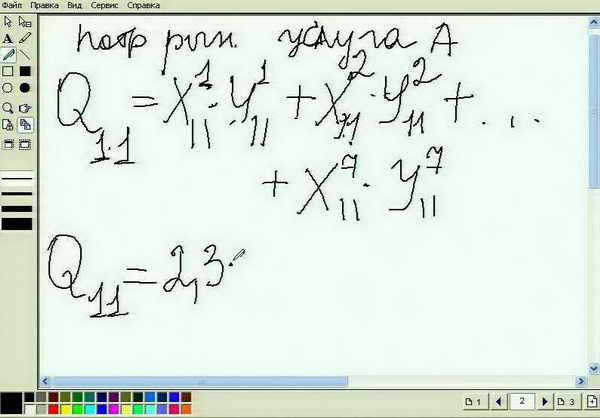 Файл Правка Вид Сервис Справка
потр рын. услуга А
Q₁.₁ = X₁₁¹ · У₁₁¹ + X₁₁² · У₁₁² + . . .
+ X₁₁⁷ · У₁₁⁷
Q₁₁ = 2,3 ·
1 2 3